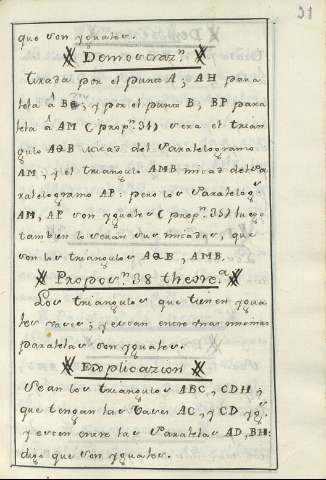 31
que son yguales.
Demostraz.n
Tirada por el punto A, AH para
lela â B , y por el punto B, BP para
lela â AM (prop.n 31) sera el trian
gulo AQB mitad del Paralelogramo
AM; y el triangulo AMB mitad del Pa
ralelogramo AP: pero los Paralelog.s
AM, AP son yguales (prop.n 35) luego
tambien lo seran sus mitades, que
son los triangulos AQB, AMB.
Propos.n 38 theore.a
Los triangulos que tienen ygua
les vases, y estan entre unas mismas
paralelas son yguales.
Explicazion
Sean los triangulos ABC, CDH,
que tengan las vases AC, y CD yg.s
y esten entre las Paralelas AD, BH:
digo que son yguales.